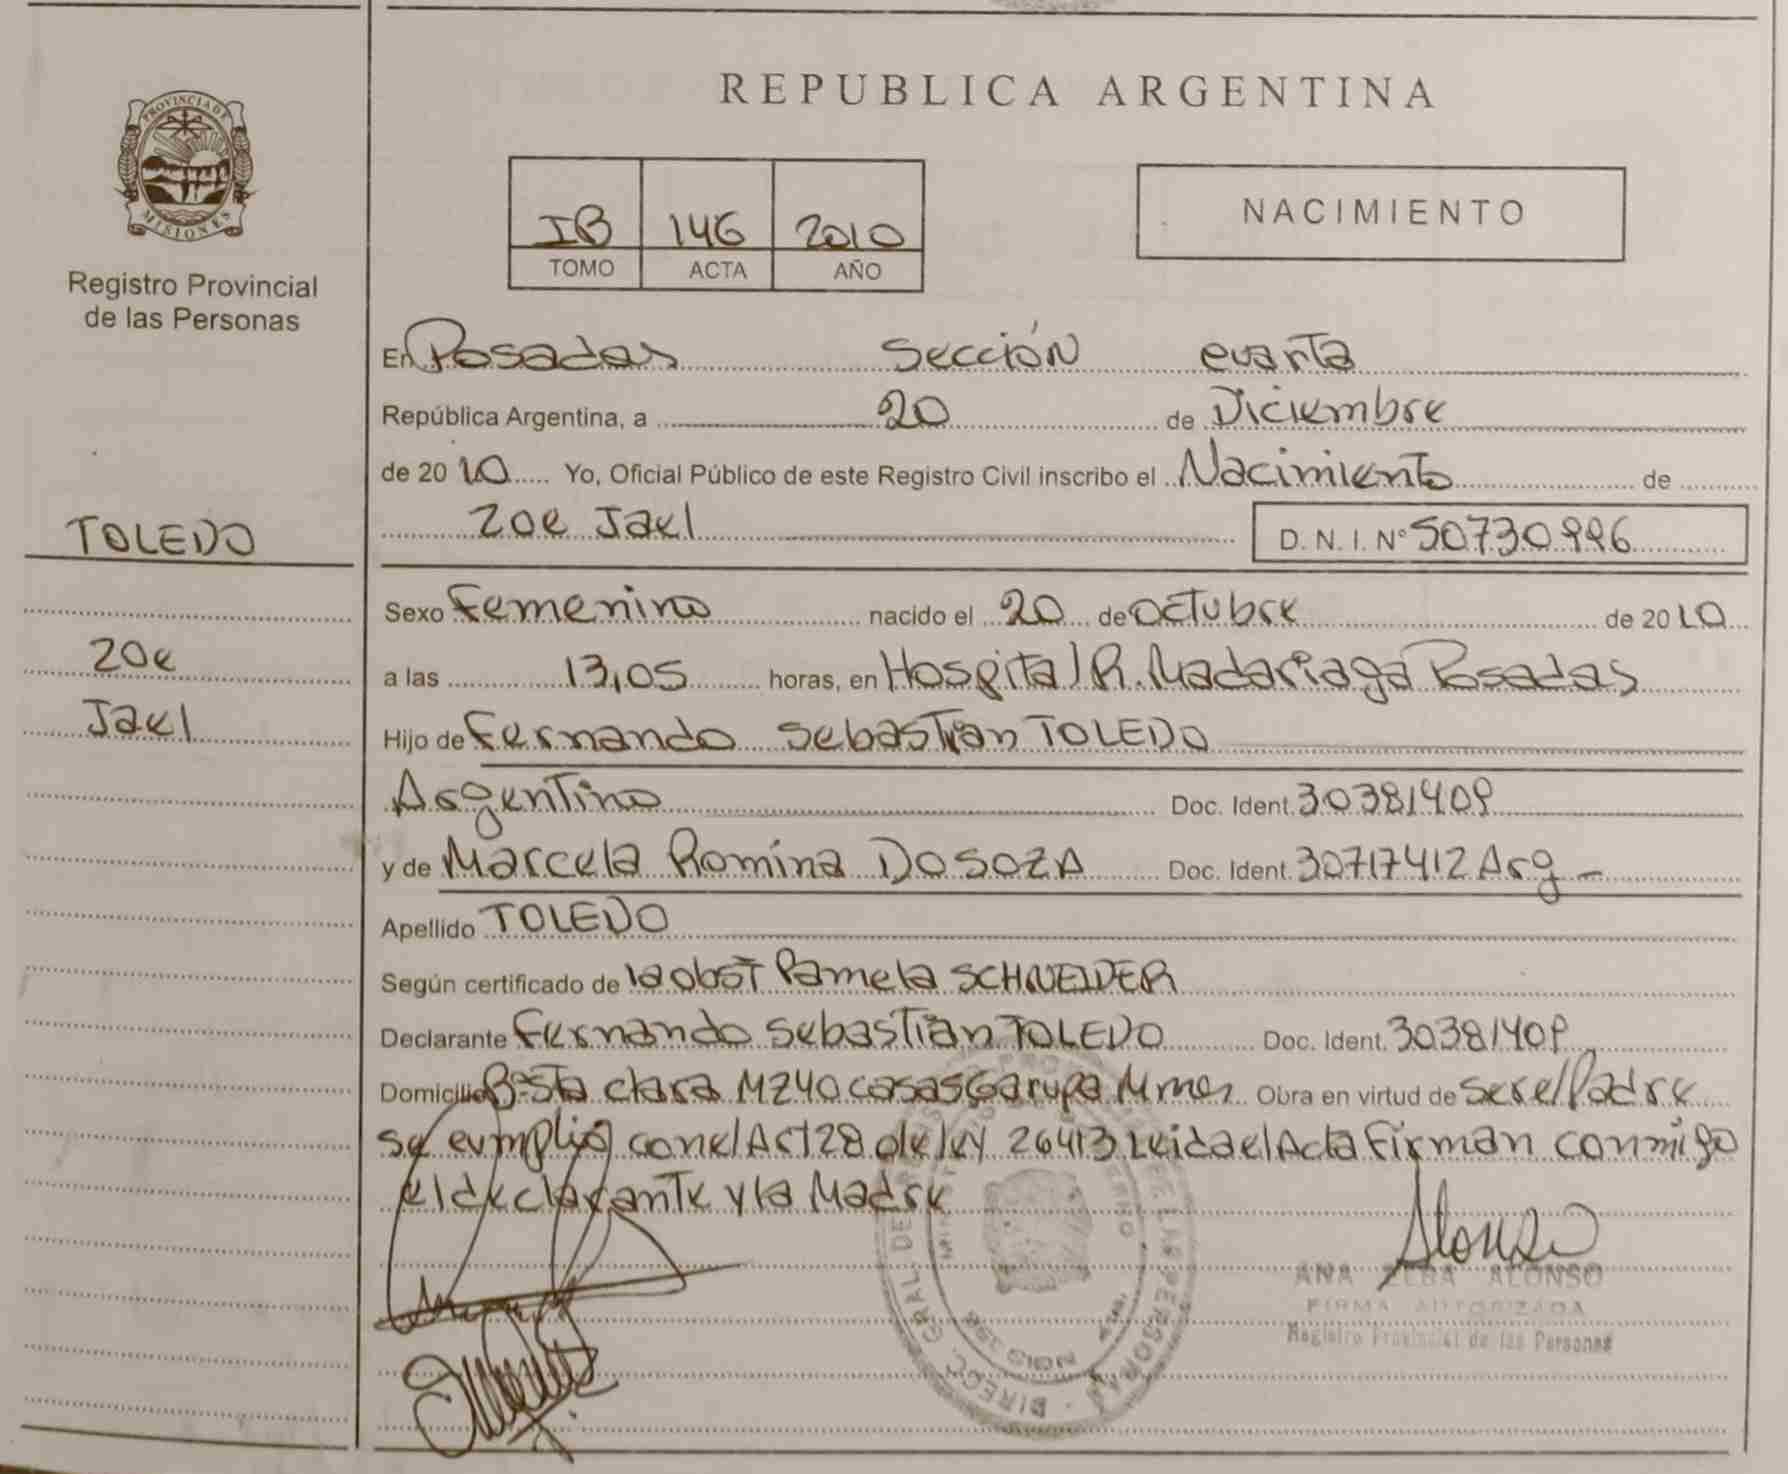 REPUBLICA ARGENTINA
PROVINCIA DE
MISIONES
Registro Provincial
de las Personas
IB 146 2010
TOMO ACTA AÑO
NACIMIENTO
En Posadas Sección cuarta
República Argentina, a 20 de Diciembre
de 2010 Yo, Oficial Público de este Registro Civil inscribo el Nacimiento de
Zoe Jael D. N. I. N° 50730996
TOLEDO
Zoe
Jael
Sexo Femenino nacido el 20 de octubre de 2010
a las 13,05 horas, en Hospital R. Madariaga Posadas
Hijo de Fernando Sebastian TOLEDO
Argentino Doc. Ident. 30381409
y de Marcela Romina DOSOZA Doc. Ident. 30717412 Arg -
Apellido TOLEDO
Según certificado de la obst Pamela SCHNEIDER
Declarante Fernando Sebastian TOLEDO Doc. Ident. 30381409
Domicilio B° Sta clara MZ40 casas Garupa Mnes Obra en virtud de ser el Padre
se cumplió con el Art 28 de ley 26413 Leida el Acta Firman conmigo
el declarante y la Madre
Alonso
ANA ELBA ALONSO
FIRMA AUTORIZADA
Registro Provincial de las Personas